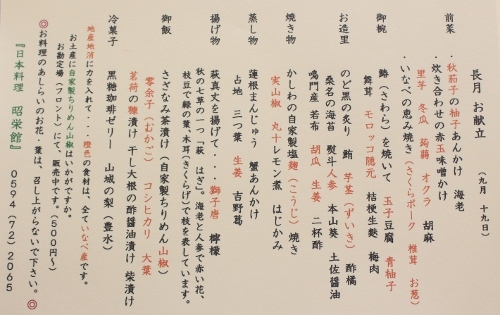 長月 お献立 (九月 十九日)
前菜
・秋茄子の柚子あんかけ 海老
・炊き合わせの赤玉味噌かけ
里芋 冬瓜 蒟蒻 オクラ 胡麻
・いなべの恵み焼き(さくらポーク 椎茸 お葱)
御椀
鰆(さわら)を焼いて 玉子豆腐 青柚子
舞茸 モロッコ隠元 桔梗生麩 梅肉
お造里
のど黒の炙り 鮪 芋茎(ずいき) 酢橘
桑名の海苔 熨斗人参 本山葵 土佐醤油
鳴門産 若布 胡瓜 生姜 二杯酢
焼き物
かしわの自家製塩麹(こうじ)焼き
実山椒 丸十レモン煮 はじかみ
蒸し物
蓮根まんじゅう 蟹あんかけ
占地 三つ葉 生姜 吉野葛
揚げ物
萩真丈を揚げて・・・獅子唐 檸檬
秋の七草の一つ「萩 はぎ」。海老と人参で赤い花、
枝豆で緑の葉、木耳(きくらげ)で枝を表しています。
御飯
さざなみ茶漬け(自家製ちりめん山椒)
零余子(むかご) コシヒカリ 大葉
茗荷の糠漬け 干し大根の酢醤油漬け 柴漬け
冷菓子
黒糖珈琲ゼリー 山城の梨(豊水)
地産地消に力を入れて・・・橙色の食材は、全ていなべ産です。
お土産に自家製ちりめん山椒はいかがですか。
お勘定場(フロント)にて、販売中です。(500円〜)
◎お料理のあしらいのお花・葉は、召し上がらないで下さい。◎
『日本料理 昭栄館』 0594(72)2065